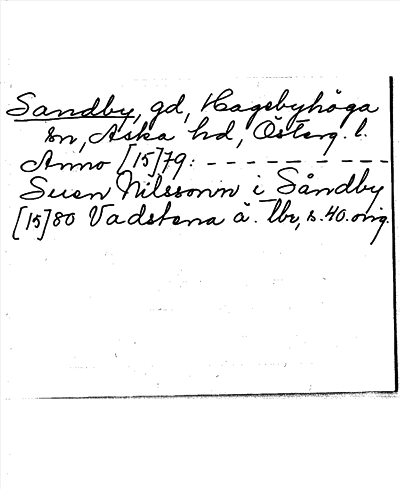 Sandby, gd, Hagebyhöga
sn, Aska hd, Österg. l.
Anno [15]79: - - - - - - - - -
Suen Nilssonn i Såndby
[15]80 Vadstena ä. tbr, s. 40. orig.